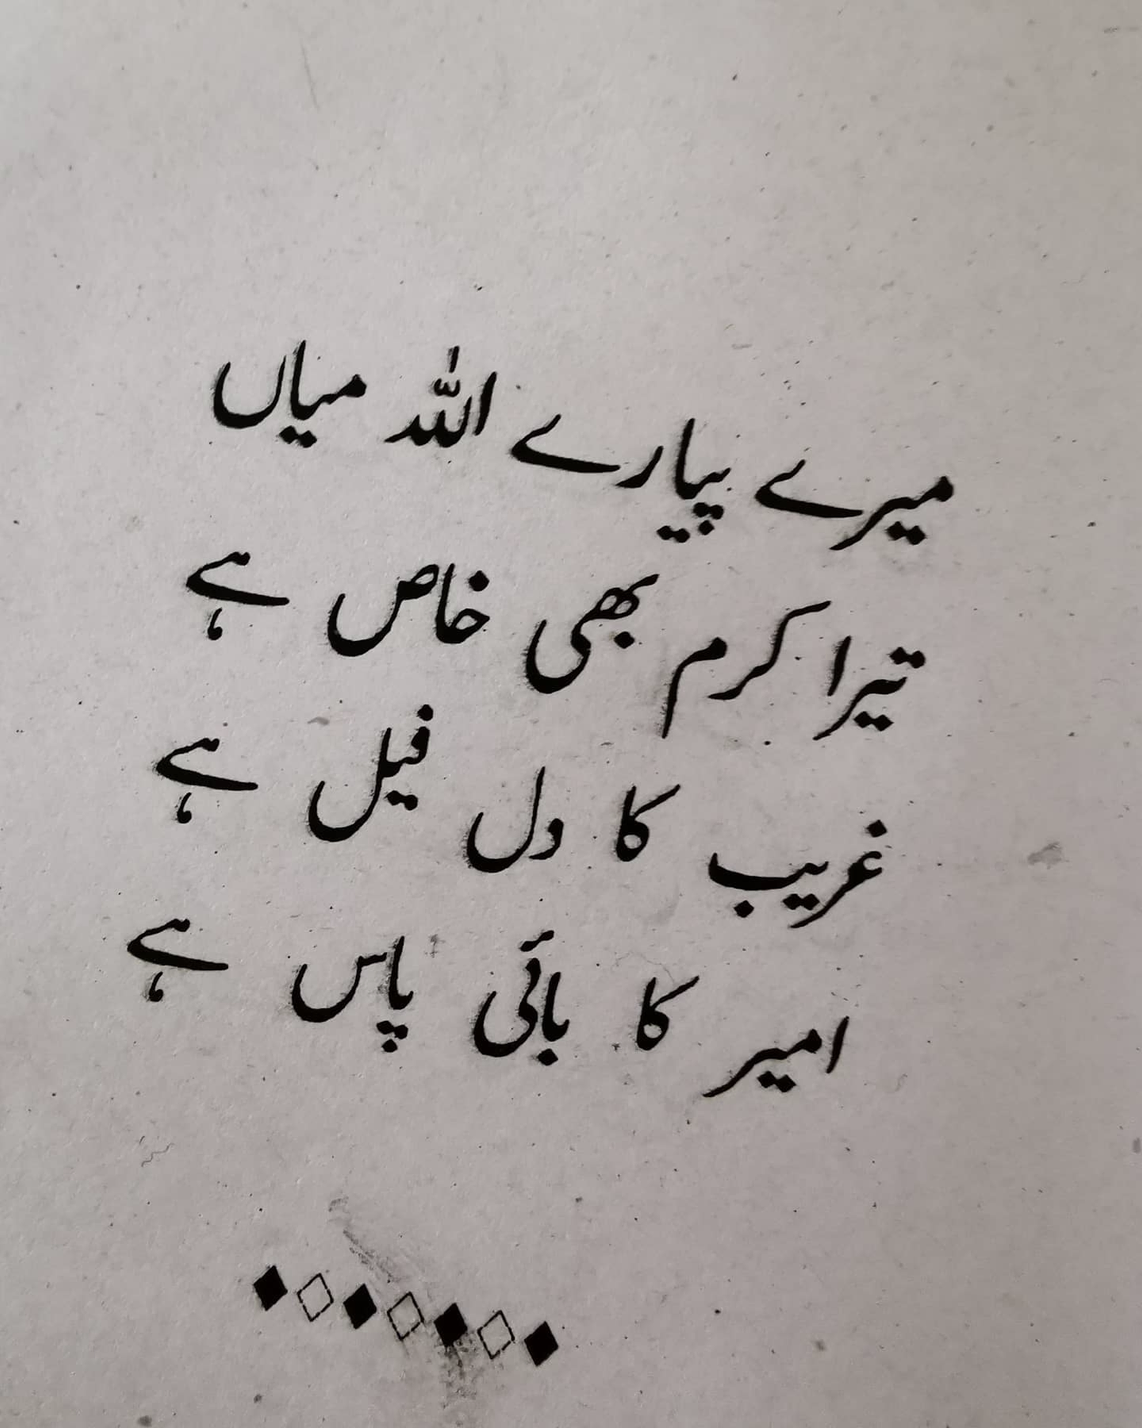 میرے پیارے اللہ میاں
تیرا کرم بھی خاص ہے
غریب کا دل فیل ہے
امیر کا بائی پاس ہے